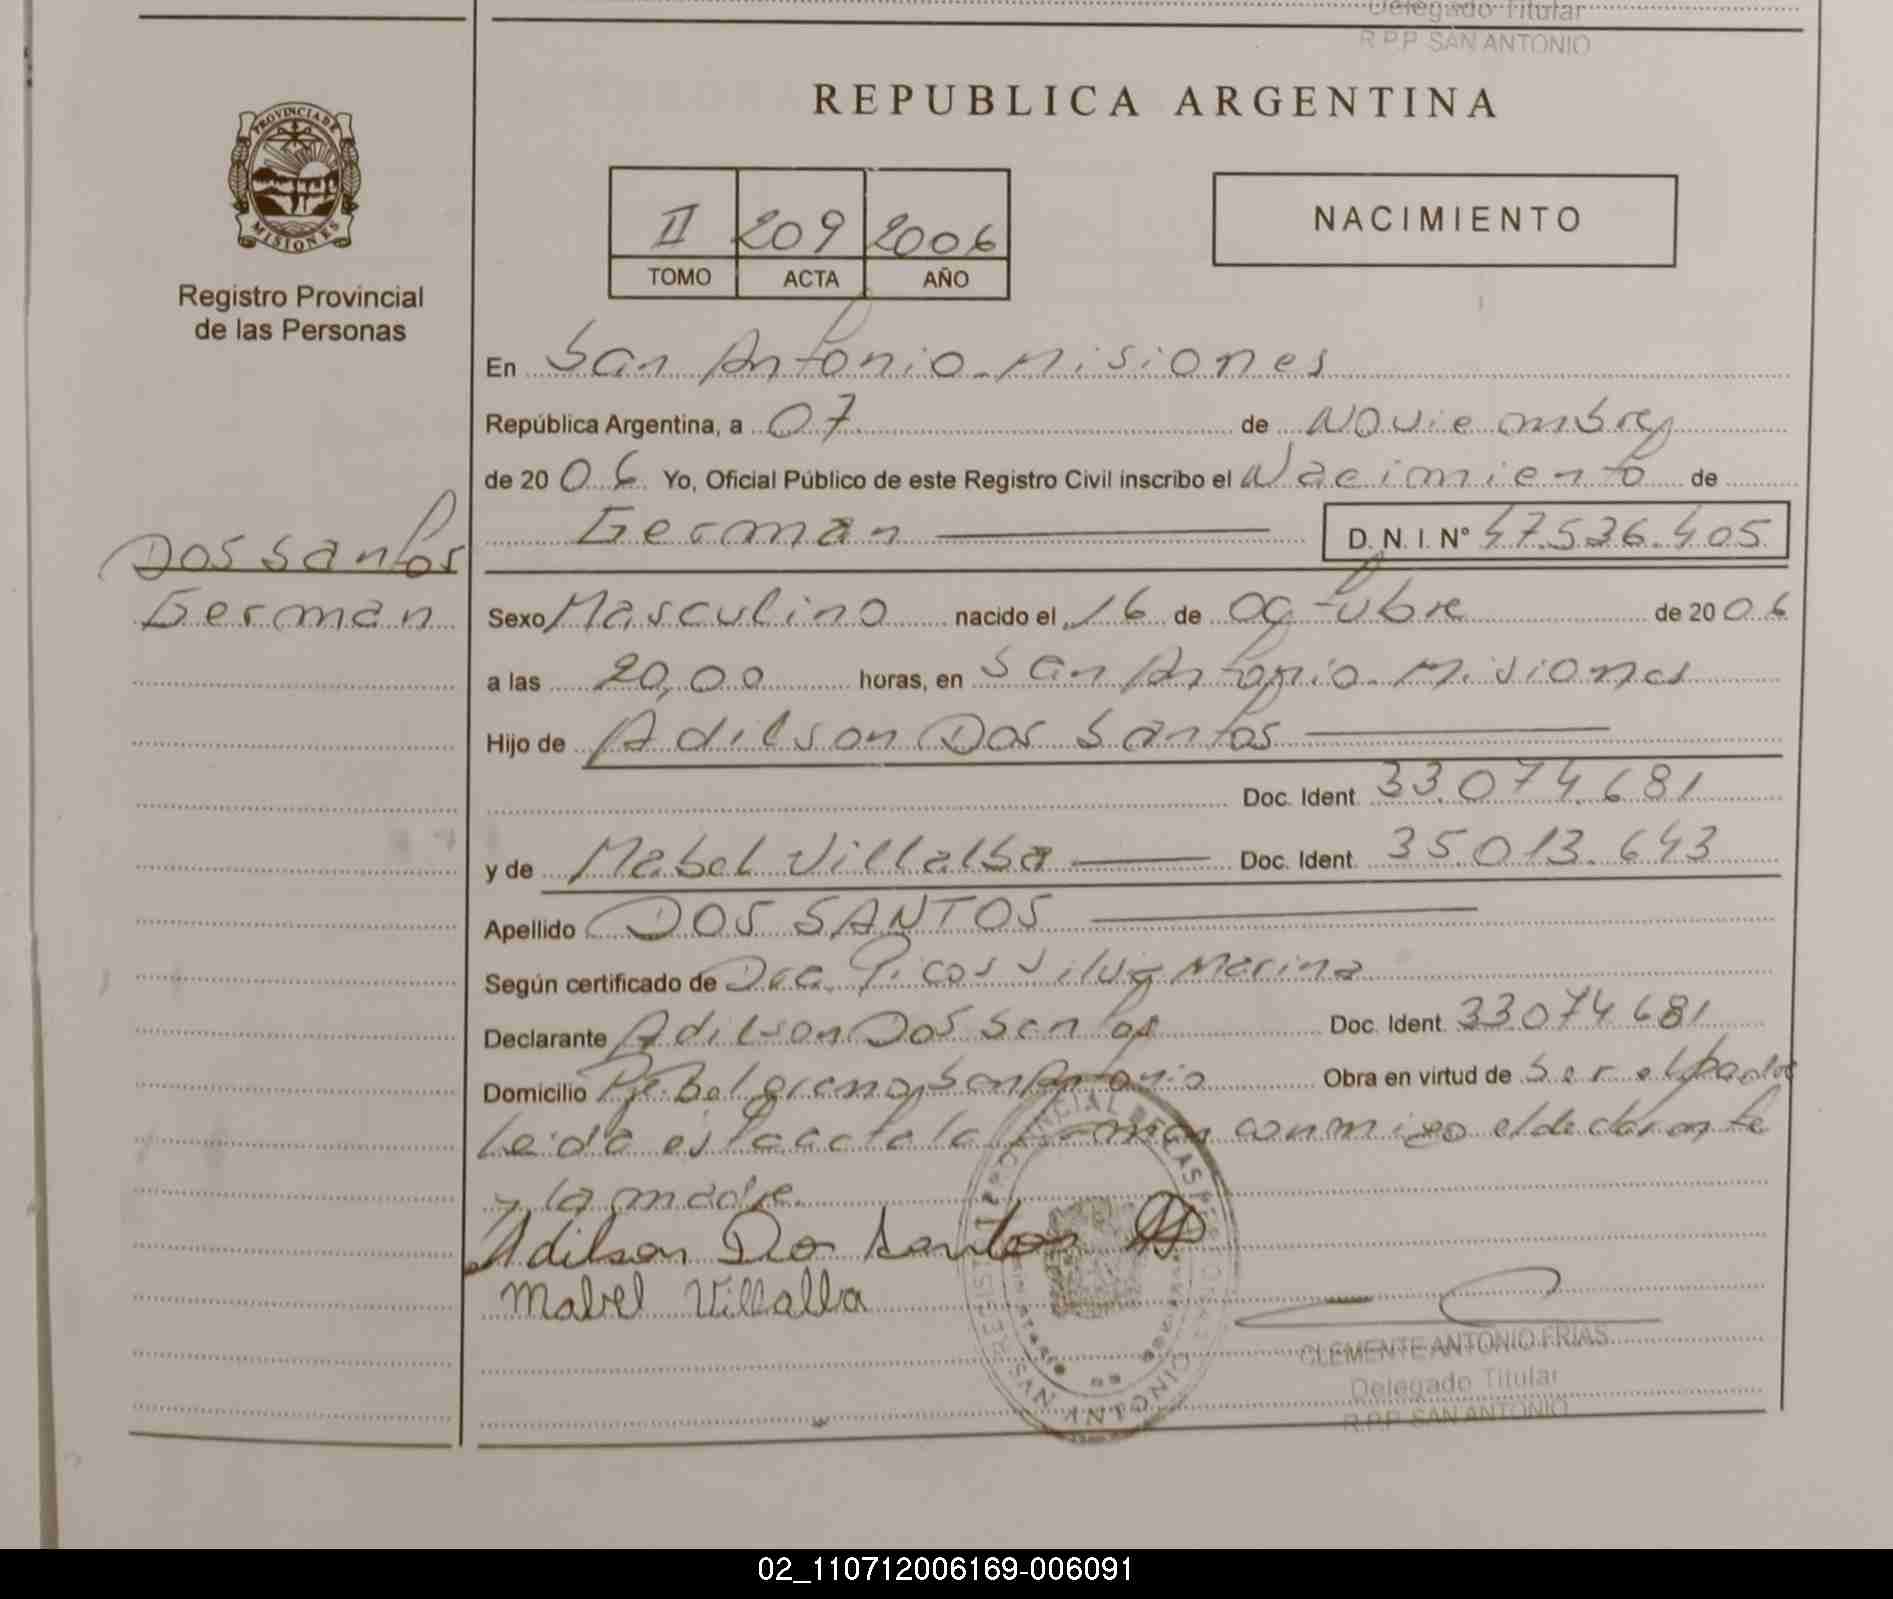 Delegado Titular
R.P.P. SAN ANTONIO
PROVINCIA DE
MISIONES
Registro Provincial
de las Personas
REPUBLICA ARGENTINA
II 209 2006
TOMO ACTA AÑO
NACIMIENTO
En San Antonio - Misiones
República Argentina, a 07 de Noviembre
de 2006 Yo, Oficial Público de este Registro Civil inscribo el Nacimiento de
German D.N.I. Nº 47.536.405
Dos Santos
German
Sexo Masculino nacido el 16 de Octubre de 2006
a las 20,00 horas, en San Antonio - Misiones
Hijo de Adilson Dos Santos
Doc. Ident. 33.074.681
y de Mabel Villalba Doc. Ident. 35.013.643
Apellido DOS SANTOS
Según certificado de Dra. Picos Silvia Marina
Declarante Adilson Dos Santos Doc. Ident. 33.074.681
Domicilio Pje Belgrano, San Antonio Obra en virtud de Ser el padre
Leida esta acta la firman conmigo el declarante
y la madre.
Adilson Do Santos
Mabel Villalba
CLEMENTE ANTONIO FRIAS
Delegado Titular
R.P.P. SAN ANTONIO
02_110712006169-006091